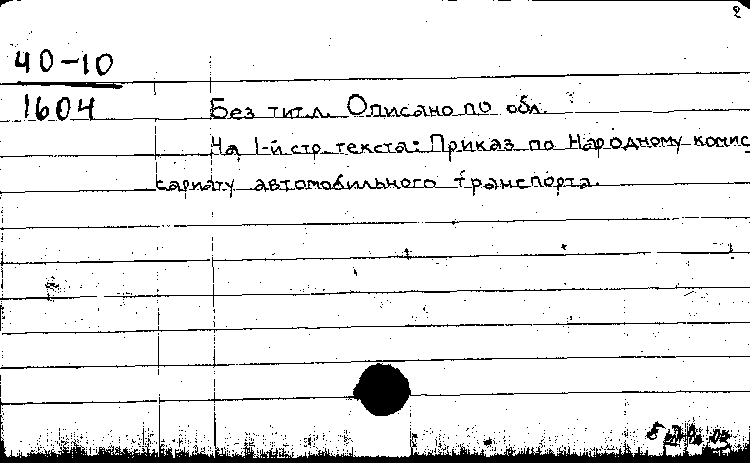 2
40-10
1604
Без тит.л. Описано по обл.
На 1-й стр. текста: Приказ по Народному комис
сариату автомобильного транспорта.